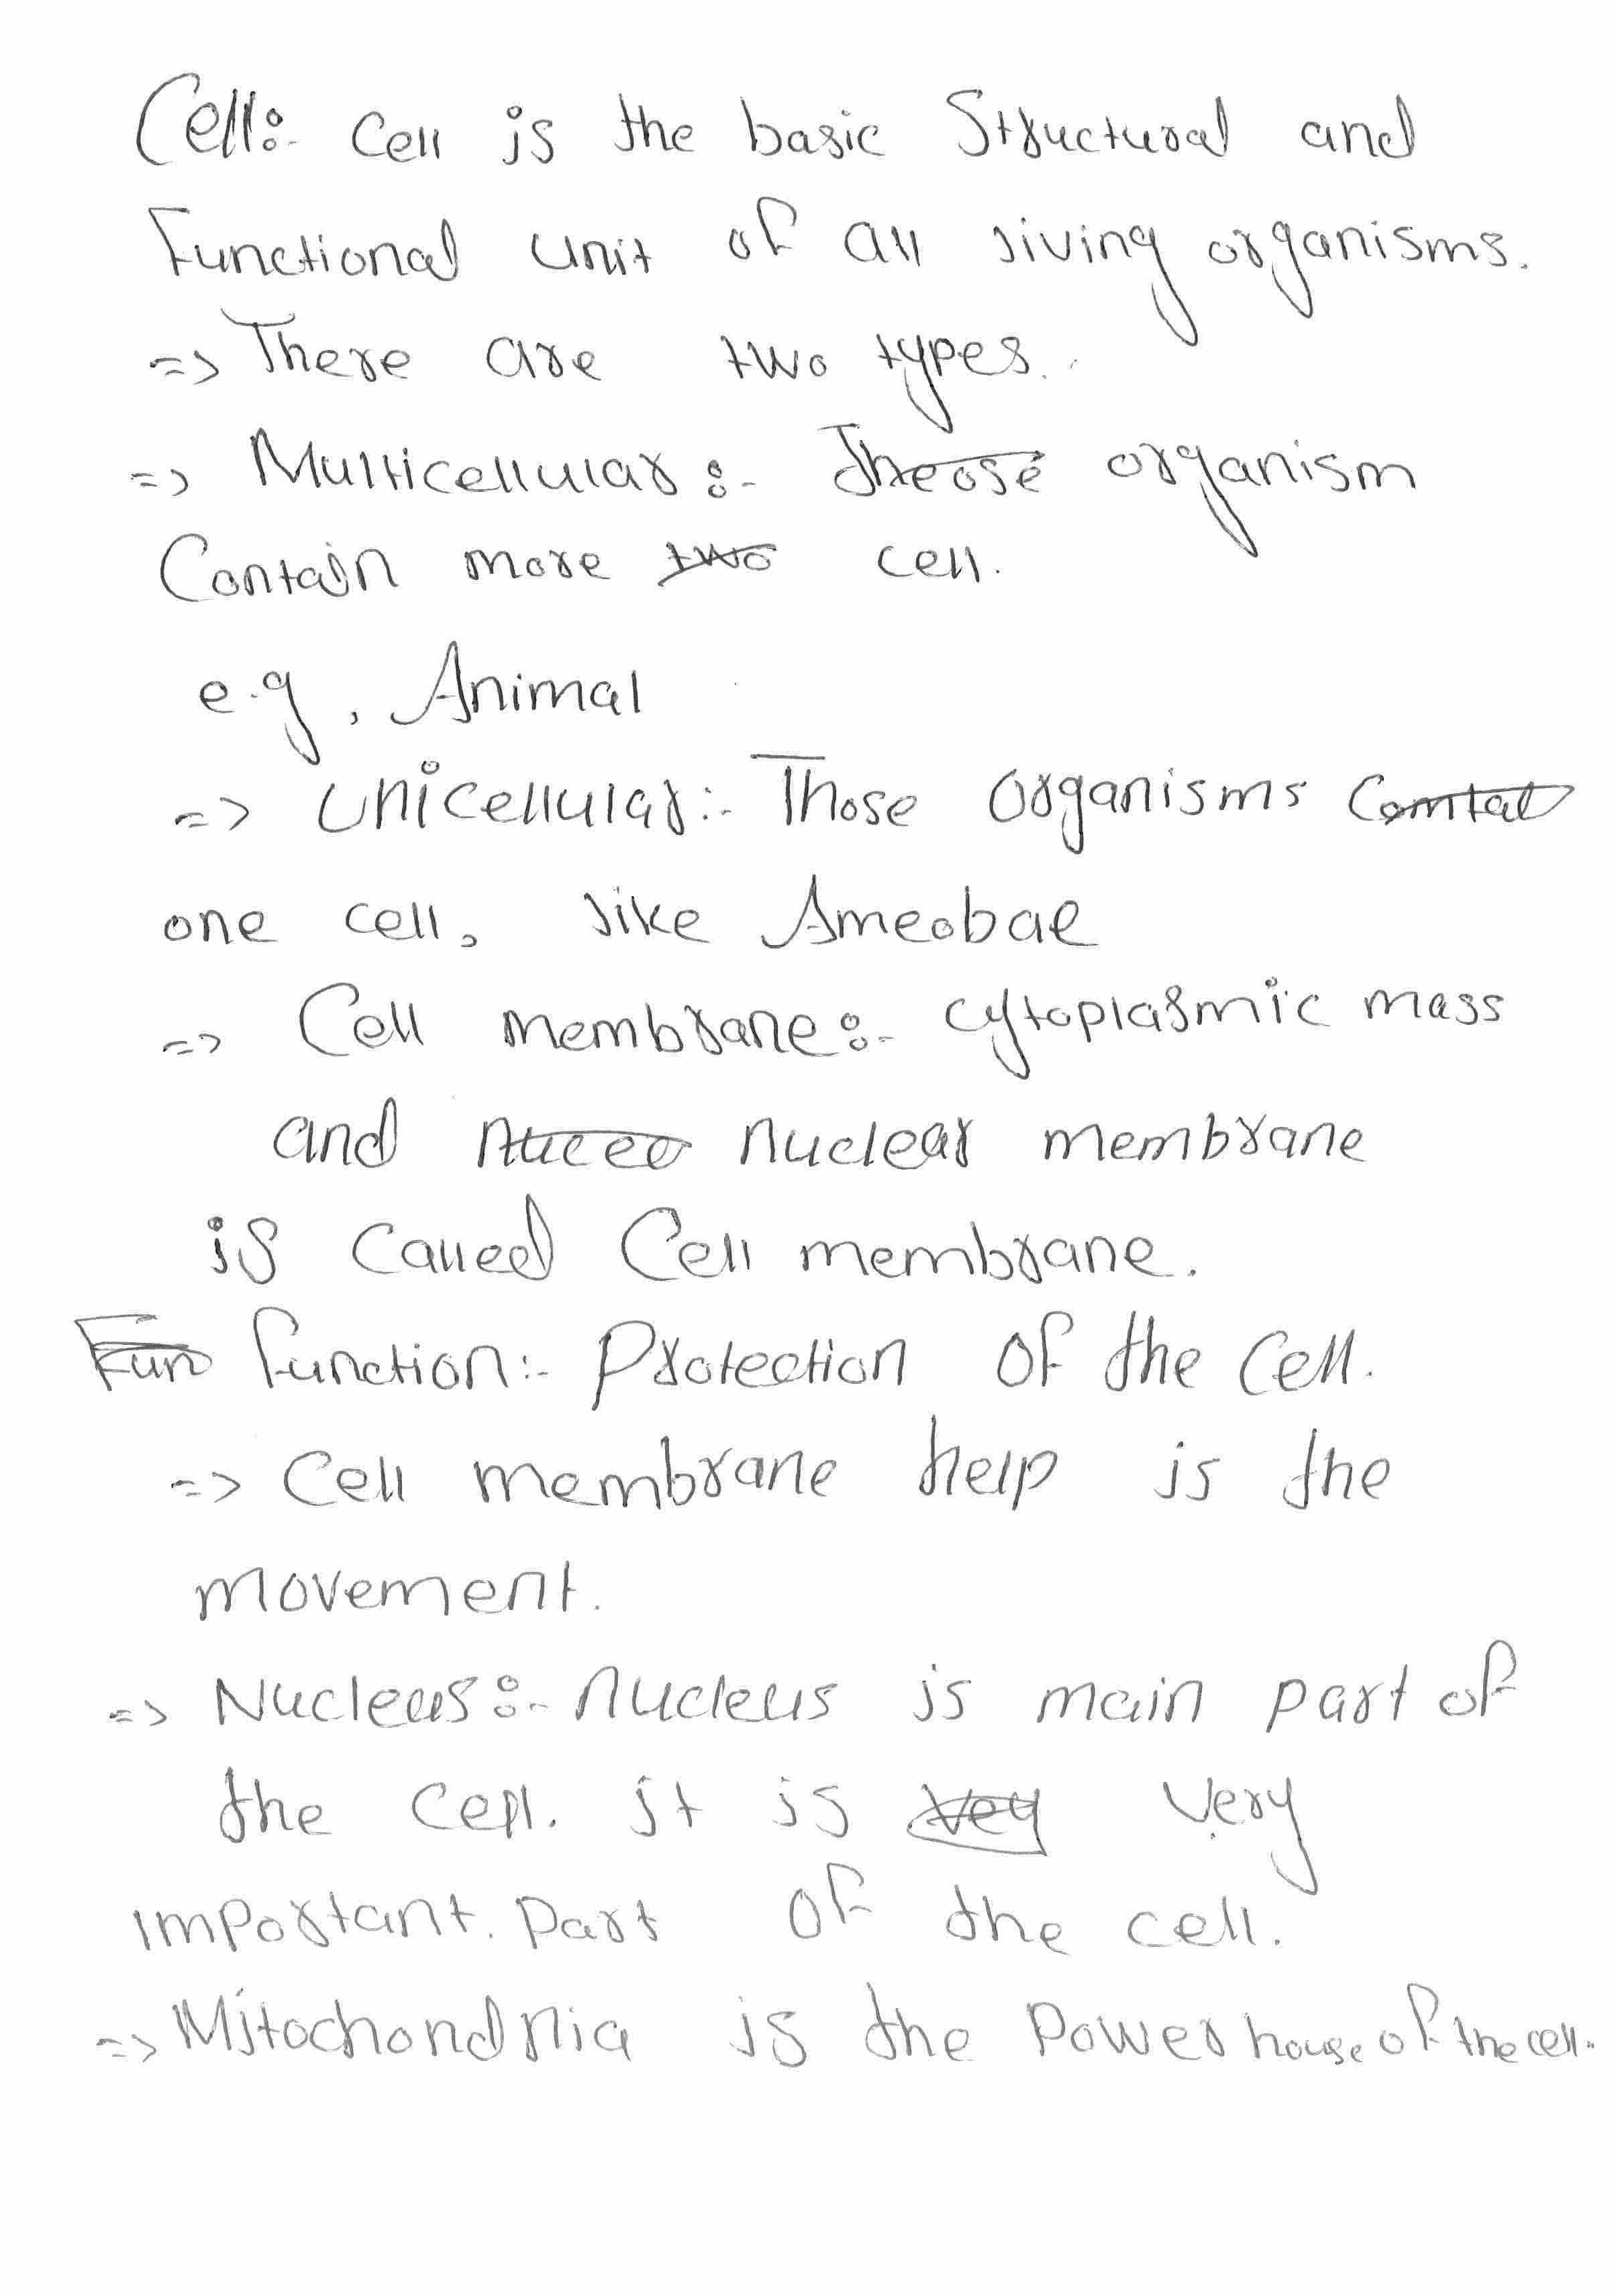 Cell:- Cell is the basic Structural and
Functional unit of all living organisms.
=> There are two types.
=> Multicellular :- Theose organism
Contain more two cell.
e.g , Animal
=> Unicellular:- Those Organisms Contat
one cell, like Ameobae
=> Cell membrane:- cytoplasmic mass
and nucleo nuclear membrane
is Called Cell membrane.
Fun function:- Protection of the Cell.
=> Cell membrane help is the
movement.
=> Nucleus:- nucleus is main part of
the cell. it is vey very
important. Part of the cell.
=> Mitochondnia is the Power house of the cell.